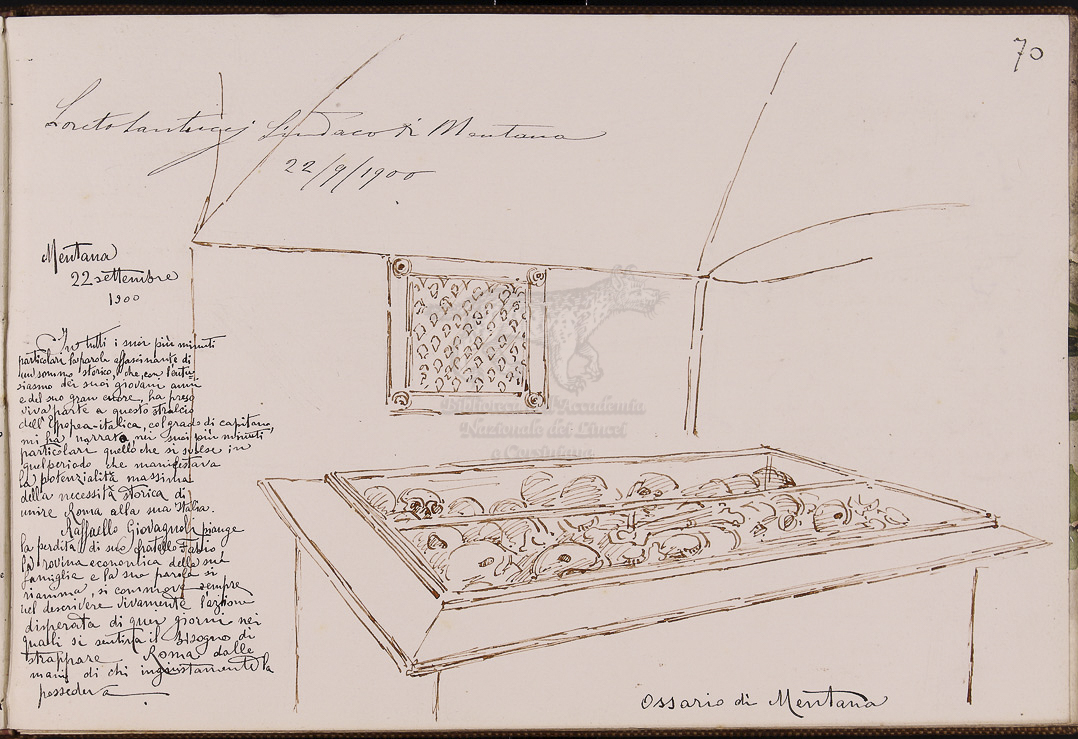 70
Loreto Santucci Sindaco di Mentana
22/9/1900
Mentana
22 settembre
1900
In tutti i suoi più minuti
particolari la parola affascinante di
un sommo storico, che, con l'entu-
siasmo dei suoi giovani anni
e del suo gran cuore, ha preso
viva parte a questo stralcio
dell'Eppopea italica, col grado di capitano,
mi ha narrato, nei suoi più minuti
particolari quello che si svolse in
quel periodo che manifestava
la potenzialità massima
della necessità storica di
unire Roma alla sua Italia.
Raffaello Giovagnoli piange
la perdita di suo fratello Fabio,
la rovina economica della sua
famiglia e la sua parola si
riamma, si commove sempre
nel descrivere vivamente l'azione
disperata di quei giorni nei
quali si sentiva il bisogno di
strappare Roma dalle
mani di chi ingiustamente la
possedeva
Biblioteca dell'Accademia
Nazionale dei Lincei
e Corsiniana
Ossario di Mentana